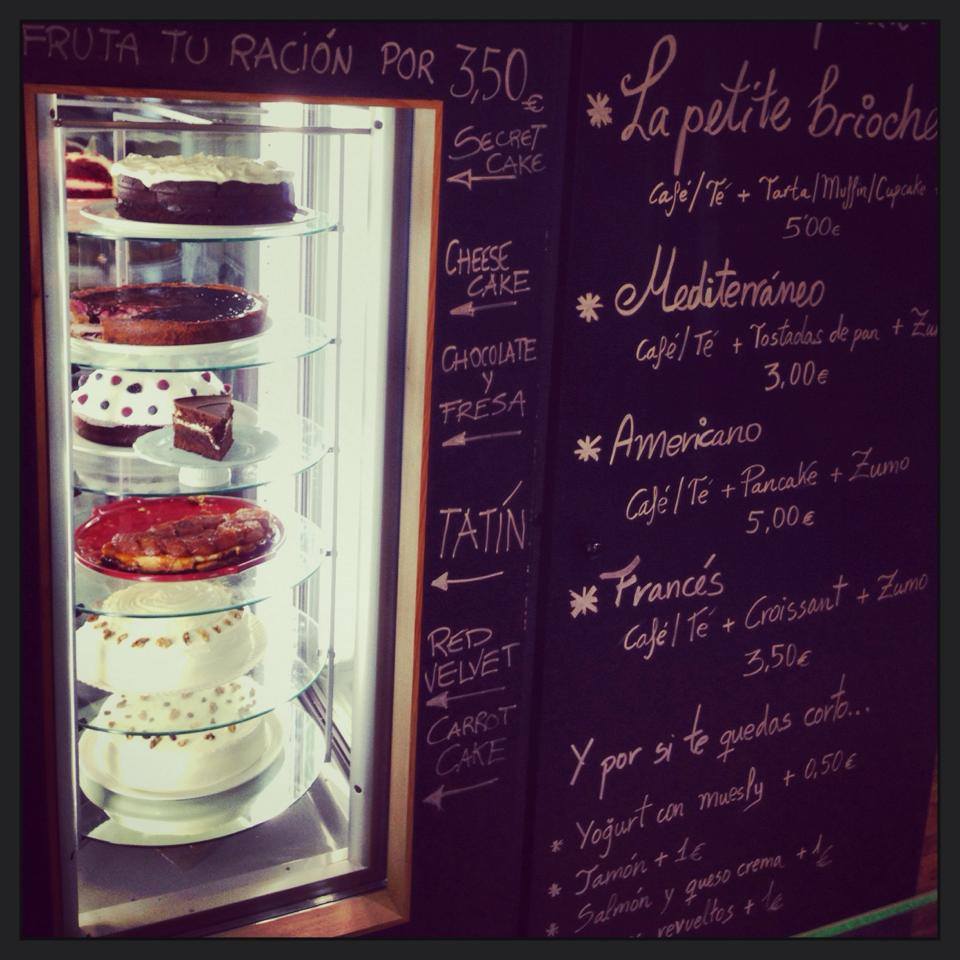 FRUTA TU RACIÓN POR 3,50€
SECRET
CAKE
CHEESE
CAKE
CHOCOLATE
Y
FRESA
TATÍN
RED
VELVET
CARROT
CAKE
* La petite brioche
Café/Té + Tarta/Muffin/Cupcake
5'00€
* Mediterráneo
Café/Té + Tostadas de pan + Zu
3,00€
* Americano
Café/Té + Pancake + Zumo
5,00€
* Francés
Café/Té + Croissant + Zumo
3,50€
Y por si te quedas corto...
* Yogurt con muesly + 0,50€
* Jamón + 1€
* Salmón y queso crema + 1€
revueltos + 1€